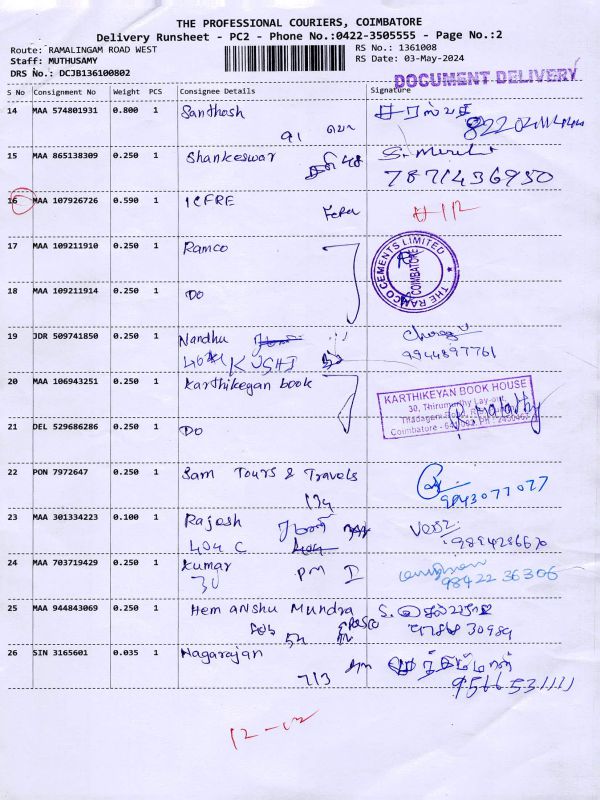 THE PROFESSIONAL COURIERS, COIMBATORE
Delivery Runsheet - PC2 - Phone No.:0422-3505555 - Page No.:2
Route: RAMALINGAM ROAD WEST RS No.: 1361008
Staff: MUTHUSAMY RS Date: 03-May-2024
DRS No.: DCJB136100802
DOCUMENT DELIVERY
S No Consignment No Weight PCS Consignee Details Signature
14 MAA 574801931 0.800 1 Santhosh
91
15 MAA 865138309 0.250 1 Shankeswar
7871436950
16 MAA 107926726 0.590 1 ICFRE
17 MAA 109211910 0.250 1 Ramco
THE RAMCO CEMENTS LIMITED
COIMBATORE
18 MAA 109211914 0.250 1 DO
19 JDR 509741850 0.250 1 Nandhu
KUSHI 9944897761
20 MAA 106943251 0.250 1 Karthikeyan book
KARTHIKEYAN BOOK HOUSE
30, Thirumurthy Lay-out,
Thadagam Road,
Coimbatore - 641
21 DEL 529686286 0.250 1 DO
22 PON 7972647 0.250 1 Sam Tours & Travels
174 9843077077
23 MAA 301334223 0.100 1 Rajesh
404 C
24 MAA 703719429 0.250 1 Kumar
30 98422 36306
25 MAA 944843069 0.250 1 Hemanshu Mundra
54
26 SIN 3165601 0.035 1 Nagarajan
713 9566531111
12-02